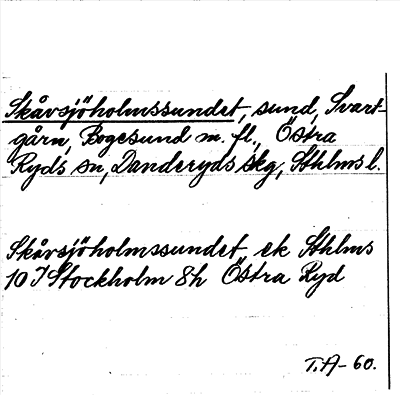 Skåvsjöholmssundet, sund, Svart-
gårn, Bogesund m. fl., Östra
Ryds sn, Danderyds skg, Sthlms l.
Skåvsjöholmssundet ek Sthlms
10 I Stockholm 8h Östra Ryd
T.A-60.